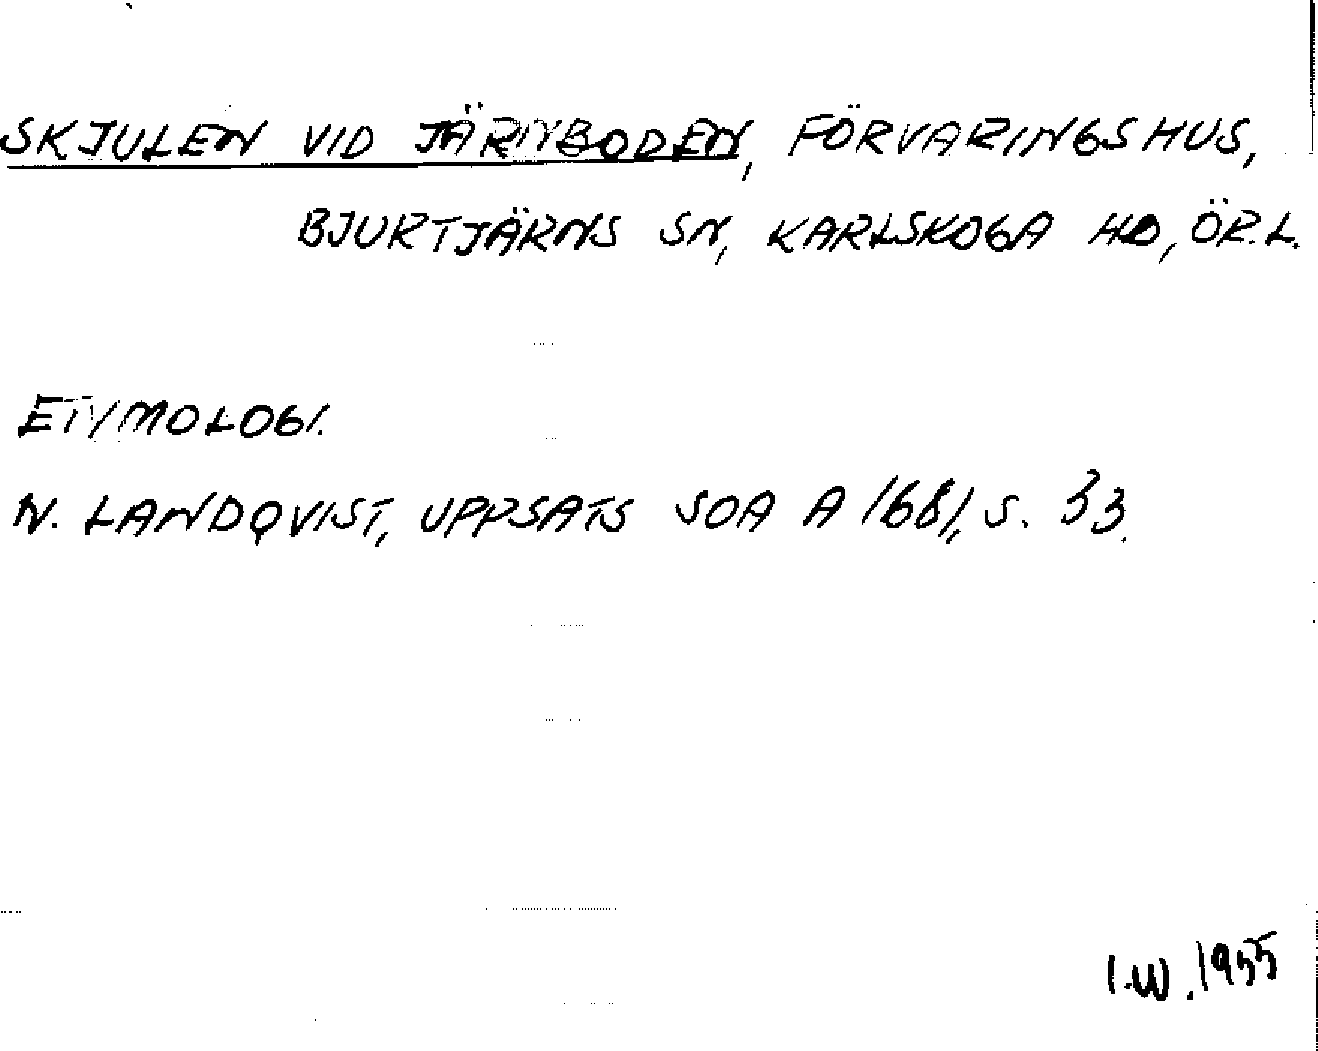 SKJULEN VID JÄRNBODEN, FÖRVARINGSHUS,
BJURTJÄRNS SN, KARLSKOGA HD, ÖR.L.
ETYMOLOGI.
N. LANDQVIST, UPPSATS SOA A 1681, S. 33.
I.W. 1955